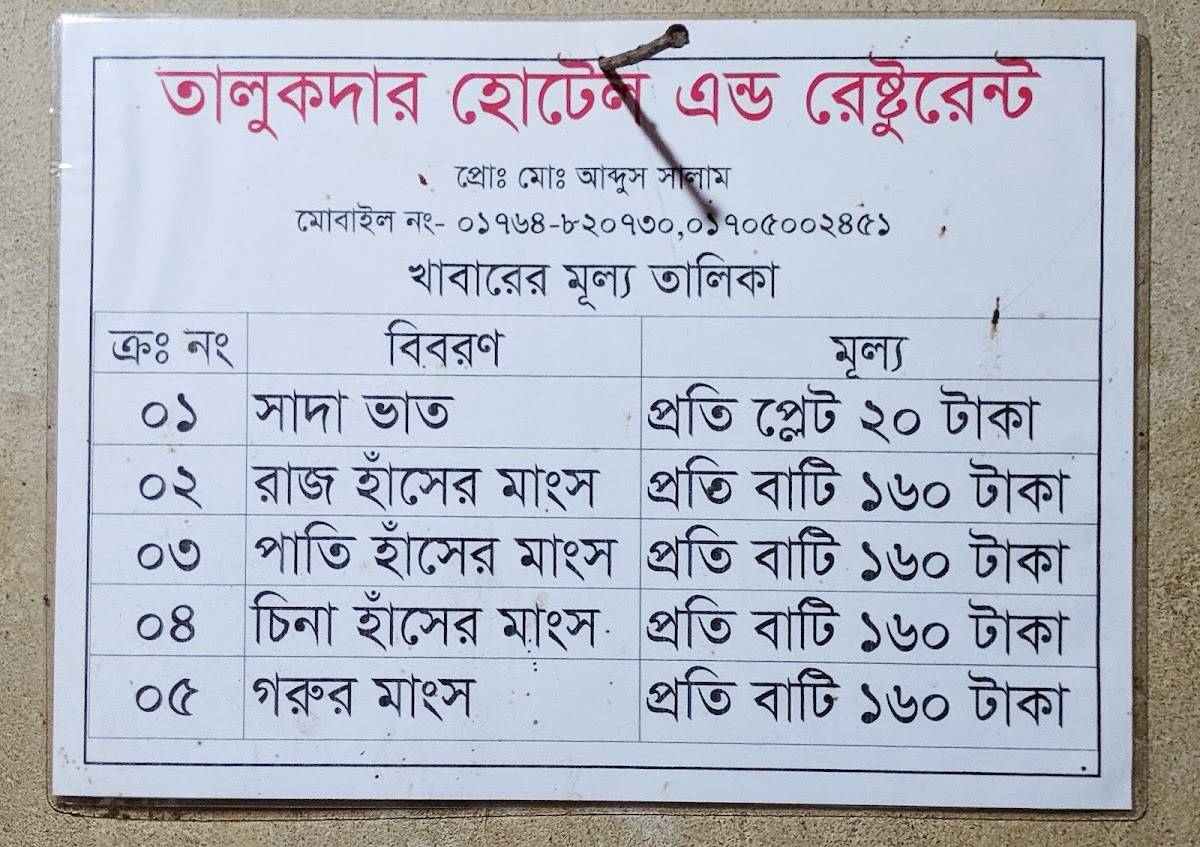 তালুকদার হোটেল এন্ড রেষ্টুরেন্ট
প্রোঃ মোঃ আব্দুস সালাম
মোবাইল নং- ০১৭৬৪-৮২০৭৩০,০১৭০৫০০২৪৫১
খাবারের মূল্য তালিকা
ক্রঃ নং বিবরণ মূল্য
০১ সাদা ভাত প্রতি প্লেট ২০ টাকা
০২ রাজ হাঁসের মাংস প্রতি বাটি ১৬০ টাকা
০৩ পাতি হাঁসের মাংস প্রতি বাটি ১৬০ টাকা
০৪ চিনা হাঁসের মাংস প্রতি বাটি ১৬০ টাকা
০৫ গরুর মাংস প্রতি বাটি ১৬০ টাকা